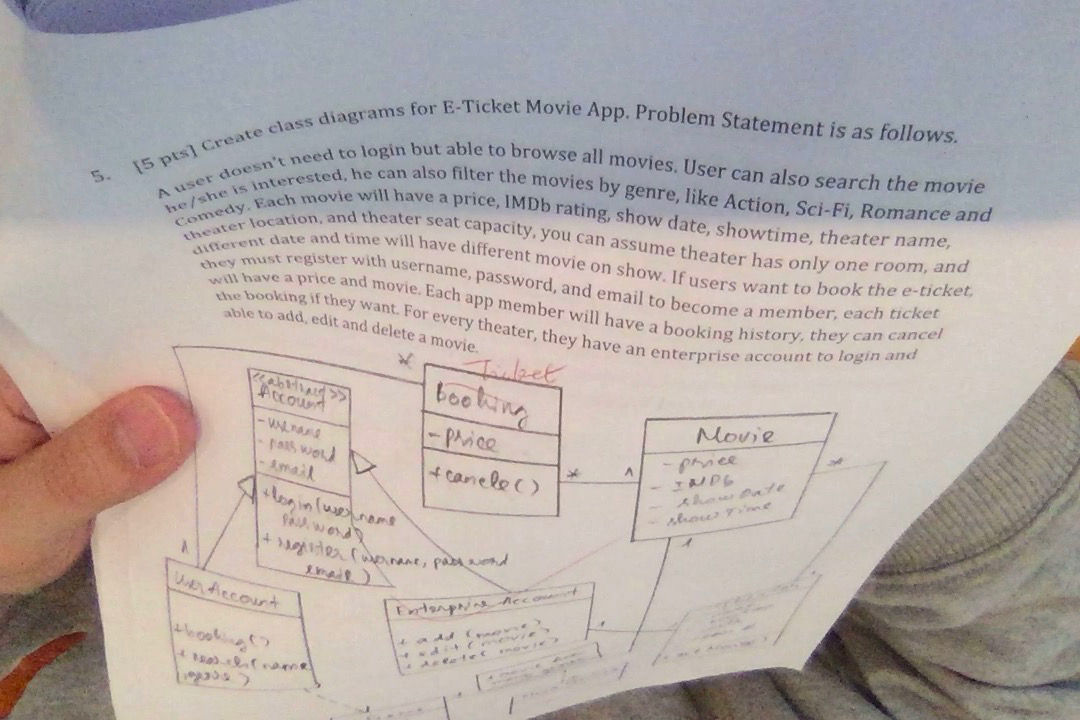 5. [5 pts] Create class diagrams for E-Ticket Movie App. Problem Statement is as follows.
A user doesn't need to login but able to browse all movies. User can also search the movie
he/she is interested, he can also filter the movies by genre, like Action, Sci-Fi, Romance and
Comedy. Each movie will have a price, IMDb rating, show date, showtime, theater name,
theater location, and theater seat capacity, you can assume theater has only one room, and
different date and time will have different movie on show. If users want to book the e-ticket,
they must register with username, password, and email to become a member, each ticket
will have a price and movie. Each app member will have a booking history, they can cancel
the booking if they want. For every theater, they have an enterprise account to login and
able to add, edit and delete a movie.
Ticket
<<abstract>>
Account
- username
- password
- email
+ login(username
password)
+ register (username, password
email)
*
booking
- price
+ cancle()
*
1
Movie
- price
- IMDb
- show Date
- show Time
*
1
1
User Account
+ booking()
+ search(name
genre)
Enterprise Account
+ add (movie)
+ edit (movie)
+ delete( movie)